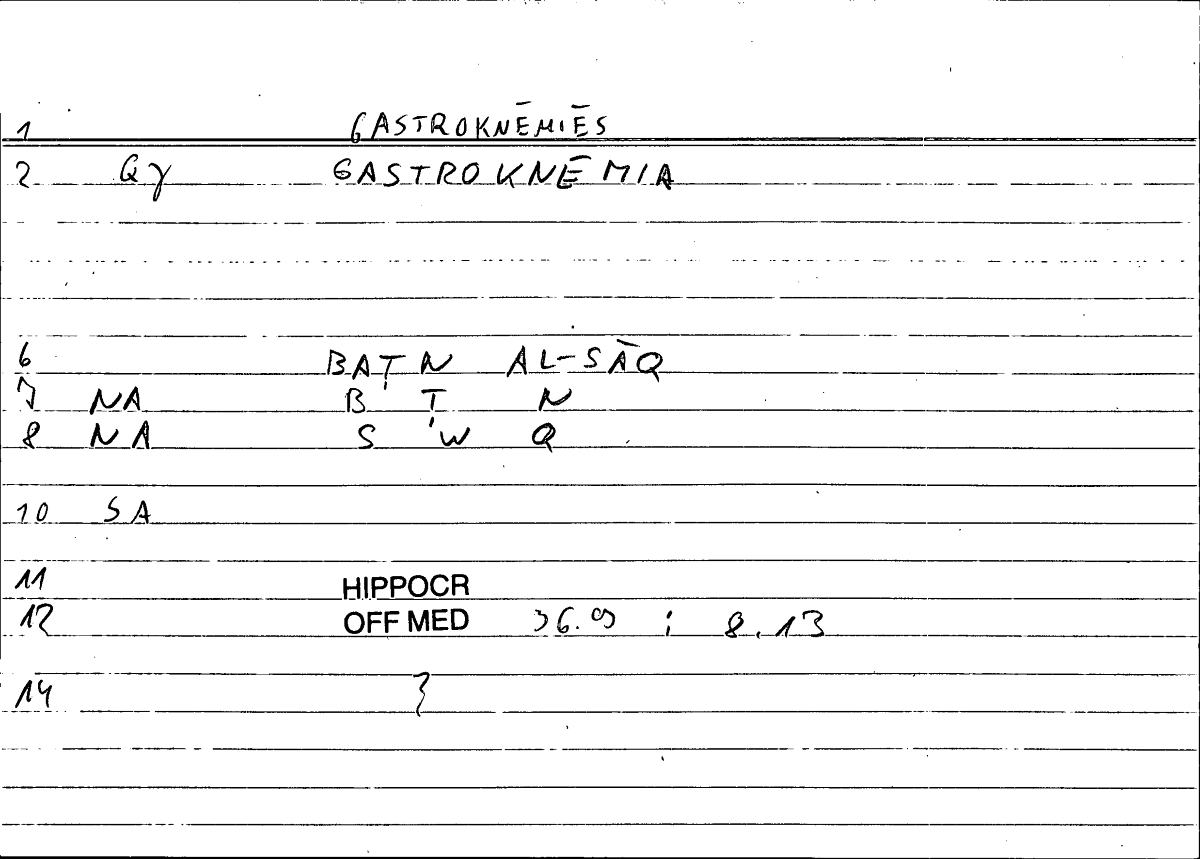 1 GASTROKNĒMIĒS
2 Gγ GASTROKNĒMIA
6 BAṬN AL-SĀQ
7 NA B Ṭ N
8 NA S W Q
10 SA
11 HIPPOCR
12 OFF MED 36.9 ; 8.13
14